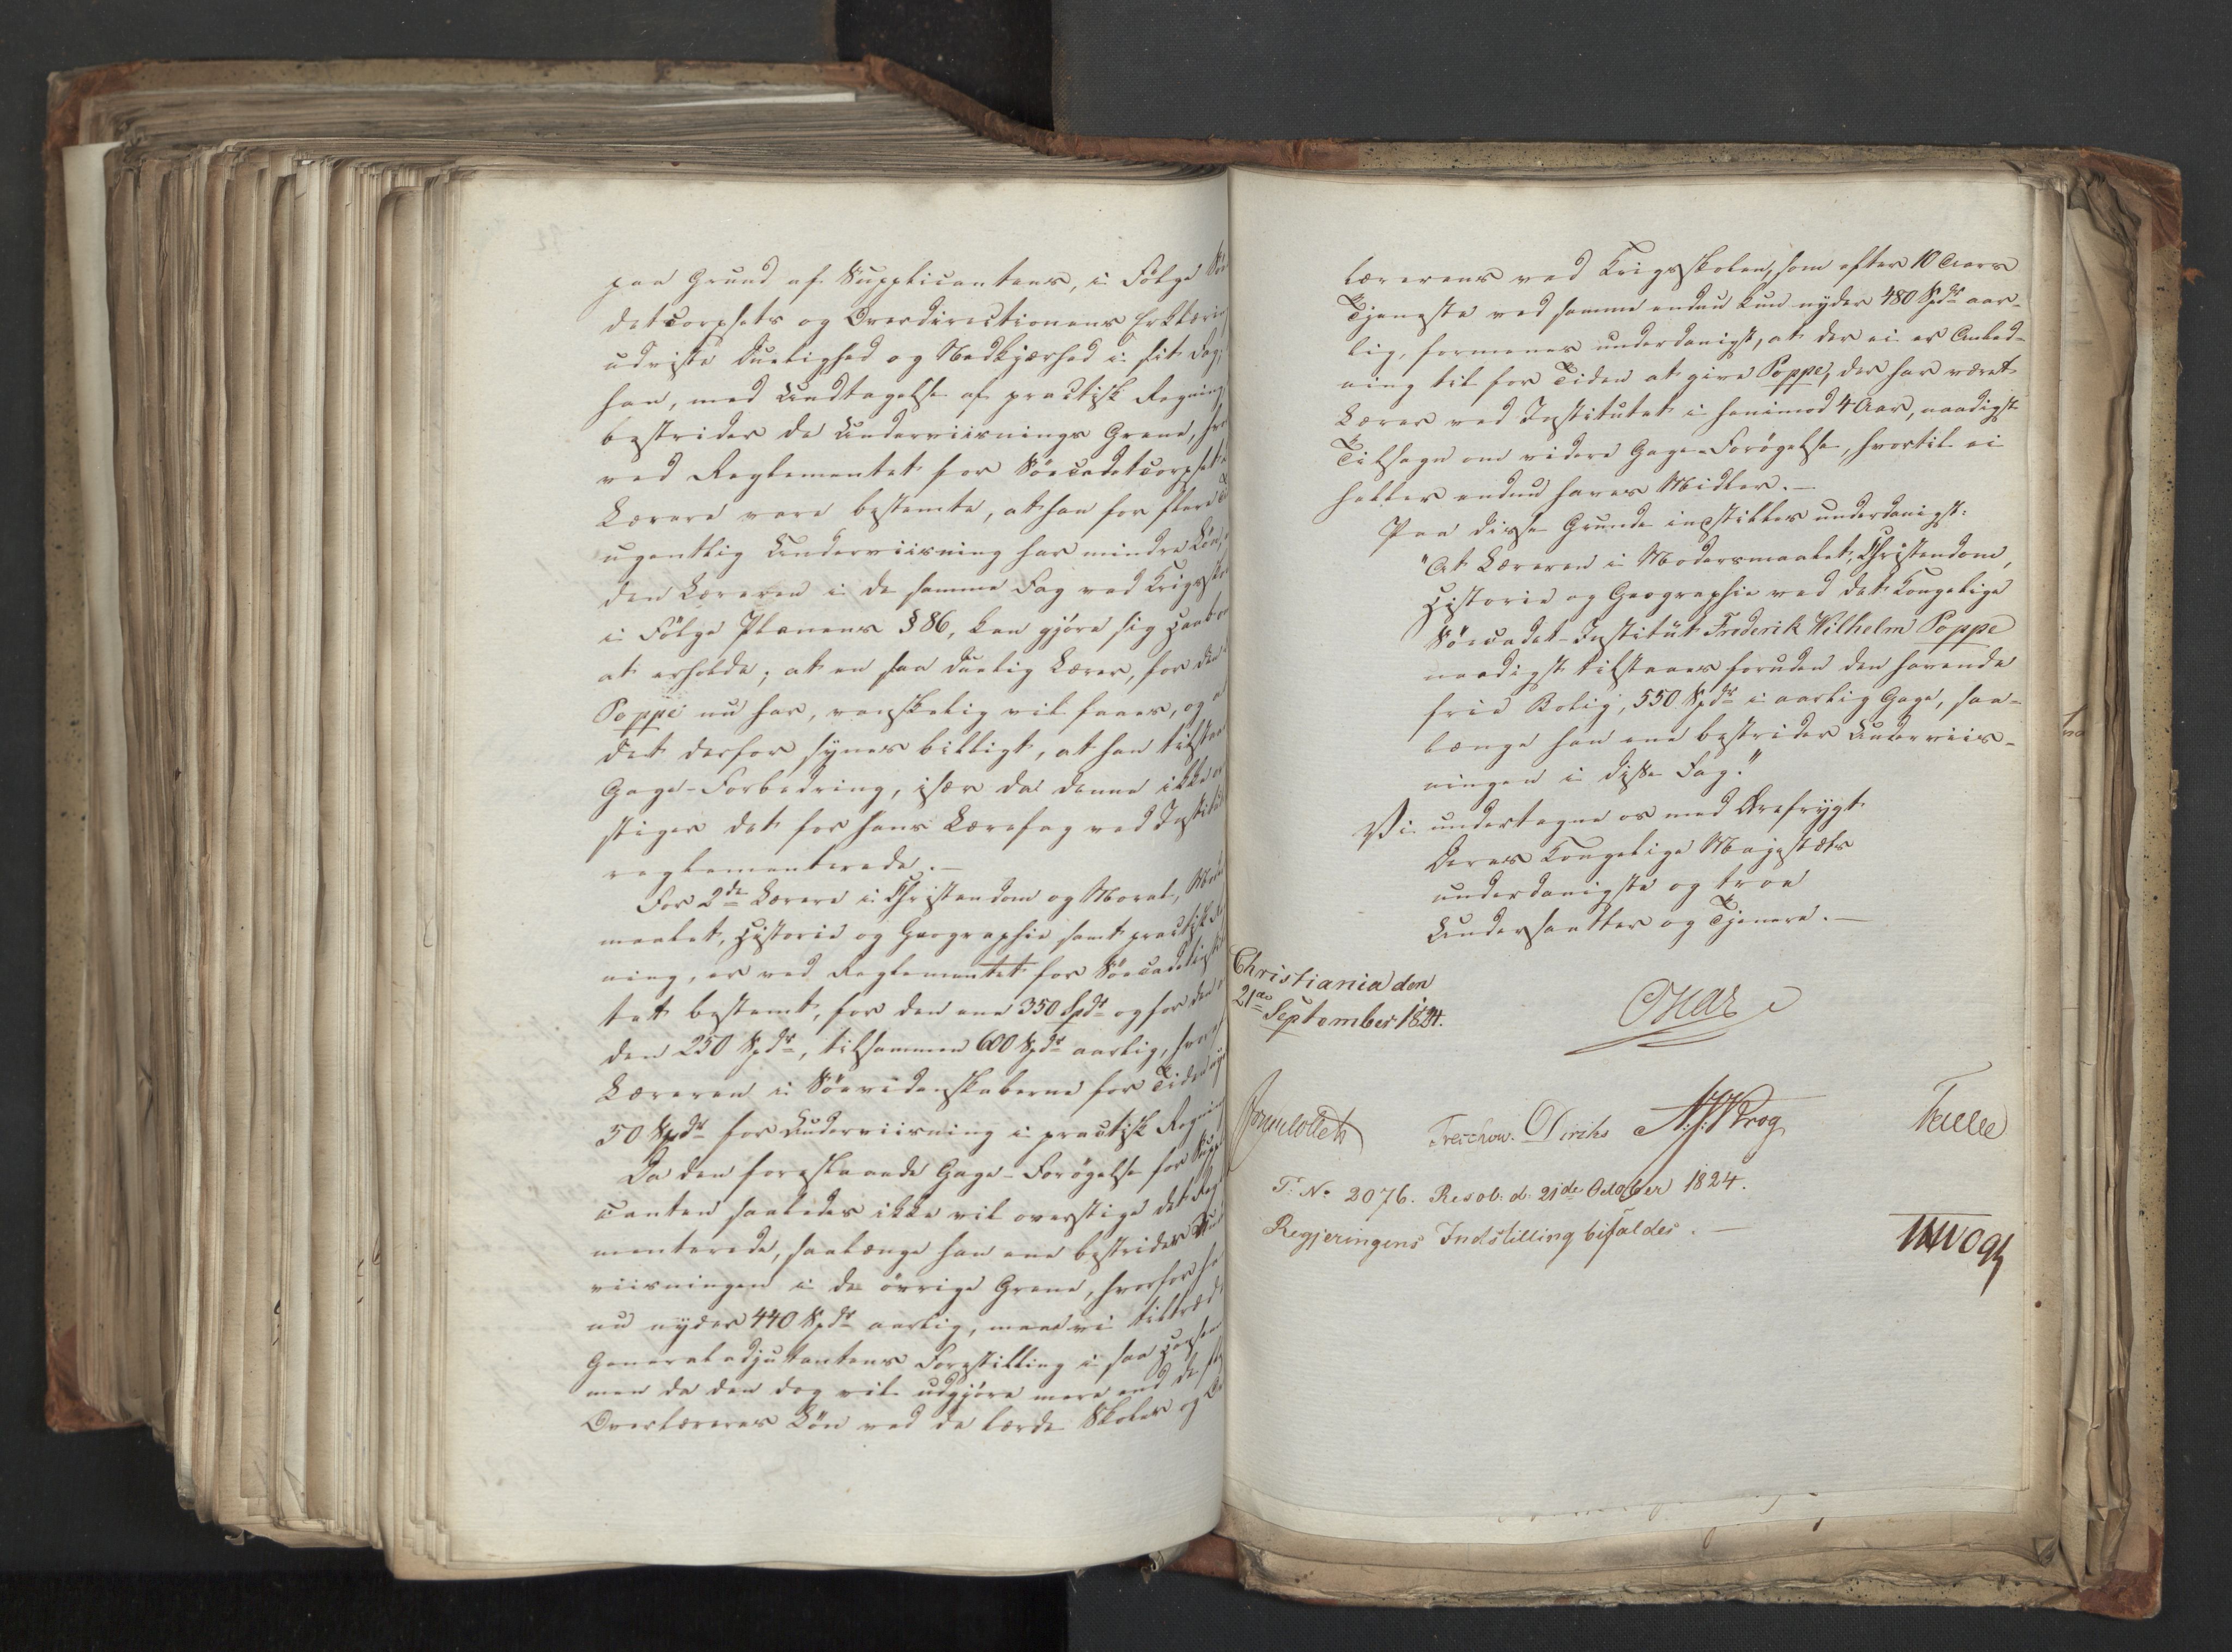 paa Grund af Supplicantens, i Følge Søe
detcorpsets og Overdirectionens Erklæring
udviste Duelighed og Nidkjærhed i sit Fag;
han, med Undtagelse af practisk Regning
bestrider de Underviisnings Grene, hvo
ved Reglementet for Søecadetcorpset
Lærere vare bestemte, at han for flere Ti
ugentlig Underviisning har mindre Løn,
den Læreren i de samme Fag ved Krigssko
i Følge Planens § 86, kan gjøre sig Haab o
at erholde; at en saa duelig Lærer, for den
Poppe nu har, vanskelig vil faaes, og a
det derfor synes billigt, at han tilstaa
Gage-Forbedring, især da denne ikke o
stiger det for hans Lærefag ved Institut
reglementerede.—
For 2de Lærere i Christendom og Moral, Mod
maalet, Historie og Geographie samt practisk Re
ning, er ved Reglementet for Søecadetinsti
tet bestemt, for den ene 350 Spdr og for den
den 250 Spdr, tilsammen 600 Spdr aarlig, hvo
Læreren i Søevidenskaberne for Tiden nyd
50 Spdr for Underviisning i practisk Regning
Da den foreslaaede Gage-Forøgelse for Suppli
canten saaledes ikke vil overstige det Regl
menterede, saalænge han ene bestrider Und
viisningen i de øvrige Grene, hvorfor ha
nu nyder 440 Spdr aarlig, maae vi tiltræde
Generaladjutantens Forestilling i saa Hense
men da den dog vil udgjøre mere end de fle
Overlæreres Løn ved de lærde Skoler og
Lærerens ved Krigsskolen, som efter 10 Aars
Tjeneste ved samme endnu kun nyder 480 Spdr aar-
lig, formenes underdanigst, at der ei er Anled-
ning til for Tiden at give Poppe, der har været
Lærer ved Institutet i henimod 4 Aar, naadigst
Tilsagn om videre Gage-Forøgelse, hvortil ei
heller endnu haves Midler.—
Paa disse Grunde indstilles underdanigst:
"At Læreren i Modersmaalet, Christendom,
Historie og Geographie ved det Kongelige
Søecadet-Institut Frederik Wilhelm Poppe
naadigst tilstaaes foruden den havende
frie Bolig, 550 Spdr i aarlig Gage, saa-
længe han ene bestrider Underviis-
ningen i disse Fag."
Vi undertegne os med Ærefrygt
Deres Kongelige Majestæts
underdanigste og troe
Undersaatter og Tjenere.—
Christiania den
21de September 1824.
Oscar
Sommerfeldt Treschow. Diriks A.J.Krog Falbe
T: No 2076. Resol: d: 21de October 1824.
Regjeringens Indstilling bifaldes.—
Vogt